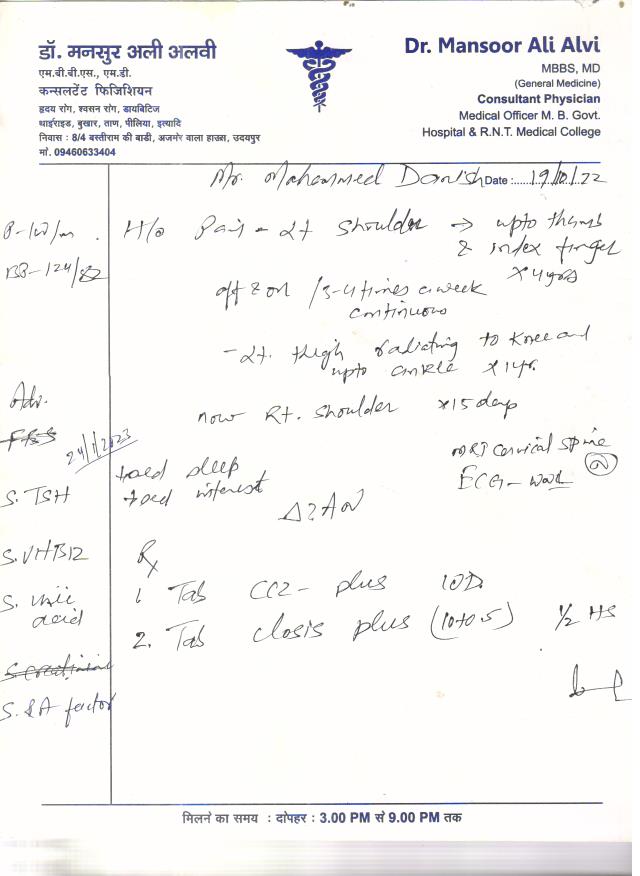 डॉ. मनसुर अली अलवी
एम.बी.बी.एस., एम.डी.
कन्सलटेंट फिजिशियन
हृदय रोग, श्वसन रोग, डायबिटिज
थाईराइड, बुखार, ताण, पीलिया, इत्यादि
निवास : 8/4 बस्तीराम की बाडी, अजमेर वाला हाउस, उदयपुर
मो. 09460633404
Dr. Mansoor Ali Alvi
MBBS, MD
(General Medicine)
Consultant Physician
Medical Officer M. B. Govt.
Hospital & R.N.T. Medical College
Mr. Mohammed Danish Date : 19/10/22
H/o Pain - Lt shoulder → upto thumb
& index finger
x 4 yrs
off & on / 3-4 times a week
continuous
- Lt. thigh radiating to knee and
upto ankle x 1 yr.
now Rt. shoulder x 15 days
BP - 124/82
Adv.
FBS
24/1/2023
S. TSH
S. VitB12
S. uric
acid
S. creatinine
S. RA factor
sleep
interest
MRI cervical spine
ECG -
Rx
1. Tab CCZ - plus 1OD
2. Tab Closis plus (10+0.5) 1/2 HS
मिलने का समय : दोपहर : 3.00 PM से 9.00 PM तक